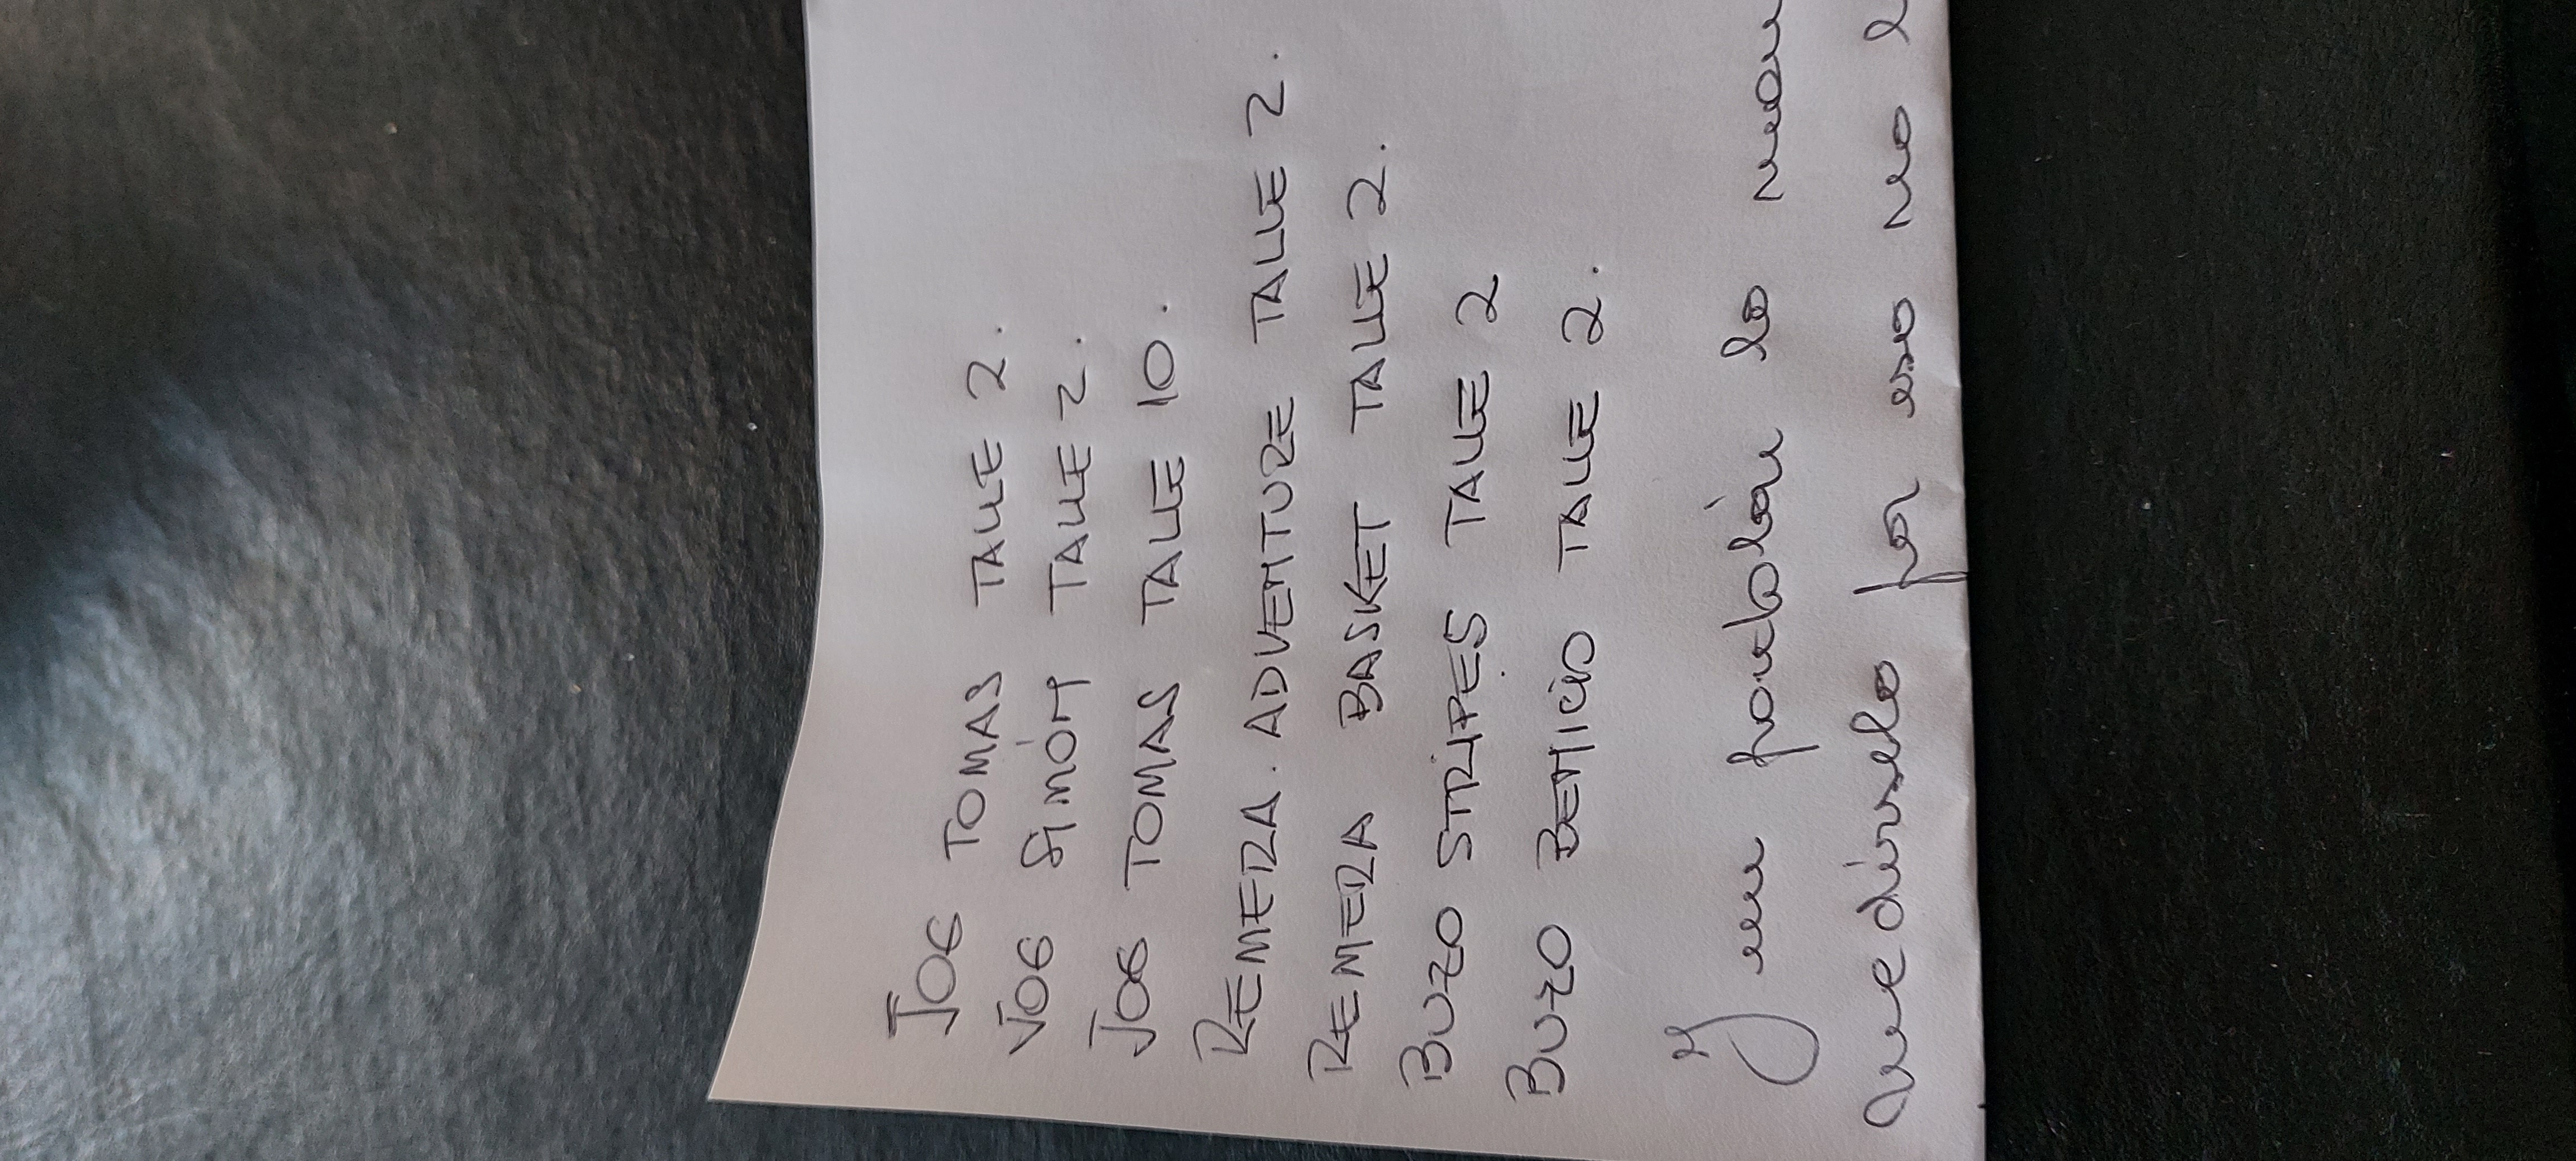 JOG TOMAS TALLE 2.
JOG SIMÓN TALLE 2.
JOG TOMAS TALLE 10.
REMERA. ADVENTURE TALLE 2.
REMERA BASKET TALLE 2.
BUZO STRIPES TALLE 2
BUZO BENICIO TALLE 2.
Y un pantalón lo
por eso no